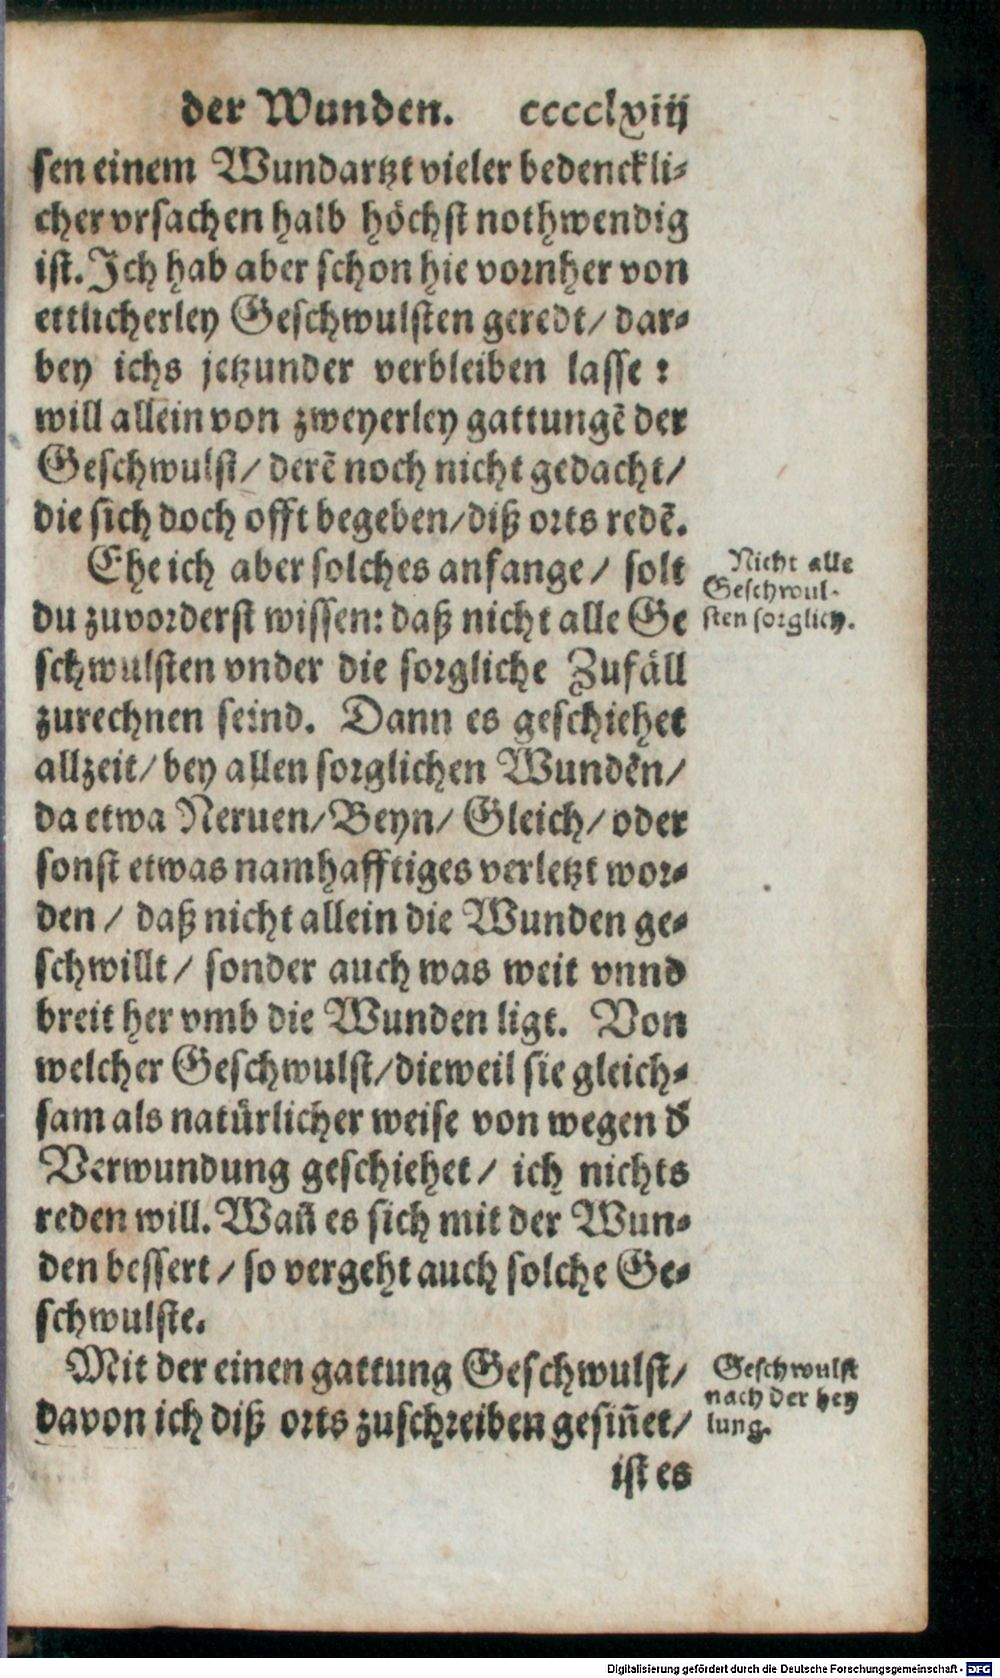 der Wunden. cccclxiij
sen einem Wundartzt vieler bedenckli-
cher vrsachen halb höchst nothwendig
ist. Ich hab aber schon hie vornher von
ettlicherley Geschwulsten geredt/ dar-
bey ichs jetzunder verbleiben lasse:
will allein von zweyerley gattungẽ der
Geschwulst/ derẽ noch nicht gedacht/
die sich doch offt begeben/ diß orts redẽ.
Ehe ich aber solches anfange/ solt
du zuvorderst wissen: daß nicht alle Ge
schwulsten vnder die sorgliche Zufäll
zurechnen seind. Dann es geschiehet
allzeit/ bey allen sorglichen Wunden/
da etwa Neruen/ Beyn/ Gleich/ oder
sonst etwas namhafftiges verletzt wor-
den/ daß nicht allein die Wunden ge-
schwillt/ sonder auch was weit vnnd
breit her vmb die Wunden ligt. Von
welcher Geschwulst/ dieweil sie gleich-
sam als natürlicher weise von wegen d'
Verwundung geschiehet/ ich nichts
reden will. Wañ es sich mit der Wun-
den bessert/ so vergeht auch solche Ge-
schwulste.
Mit der einen gattung Geschwulst/
davon ich diß orts zuschreiben gesiñet/
ist es
Nicht alle
Geschwul-
sten sorglich.
Geschwulst
nach der hey
lung.
Digitalisierung gefördert durch die Deutsche Forschungsgemeinschaft - DFG